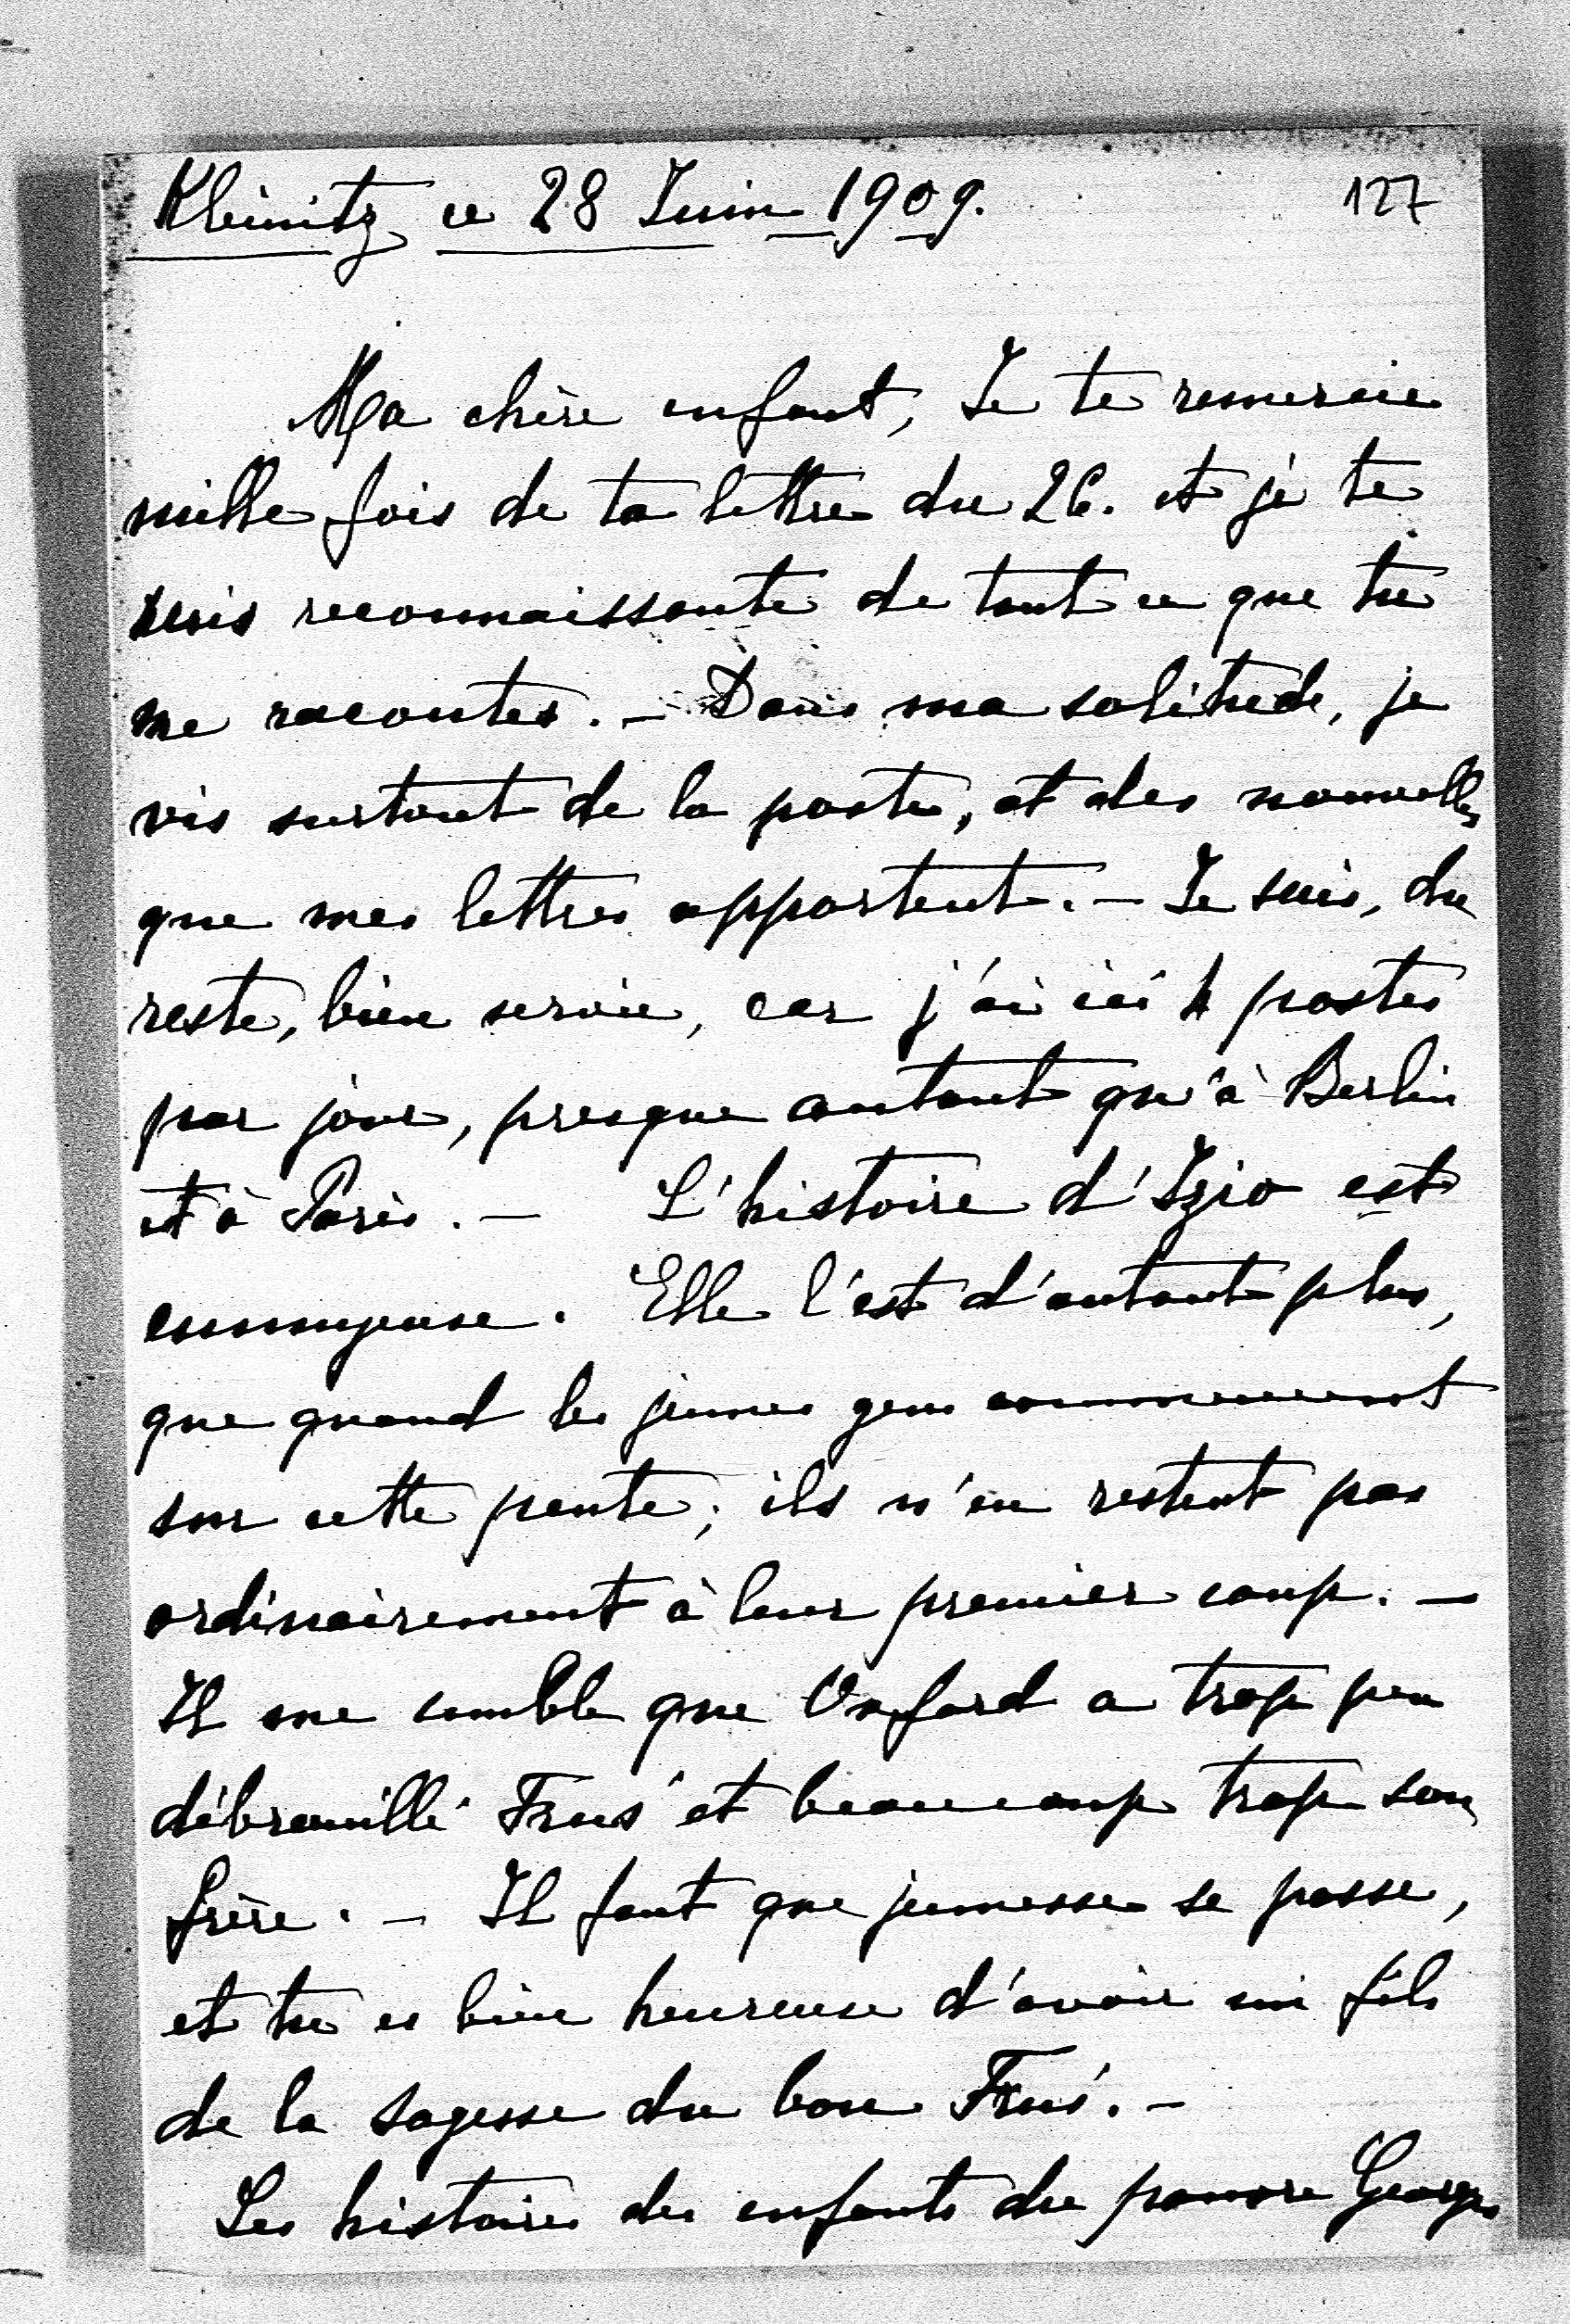 Kleinitz, ce 28 Juin 1909.
127
Ma chère enfant, Je te remercie
mille fois de ta lettre du 26. et je te
suis reconnaissante de tout ce que tu
me racontes. — Dans ma solitude, je
vis surtout de la poste, et des nouvelles
que mes lettres apportent. — Je suis, du
reste, bien servie, car j'ai ici 4 postes
par jour, presque autant qu'à Berlin
et à Paris. — L'histoire d'Izio est
ennuyeuse. Elle l'est d'autant plus,
que quand les jeunes gens commencent
sur cette pente, ils n'en restent pas
ordinairement à leur premier coup. —
Il me semble que Oxford a trop peu
débrouillé Frus' et beaucoup trop son
frère. — Il faut que jeunesse se passe,
et tu es bien heureuse d'avoir un fils
de la sagesse du bon Frus'. —
Les histoires des enfants du pauvre Georges